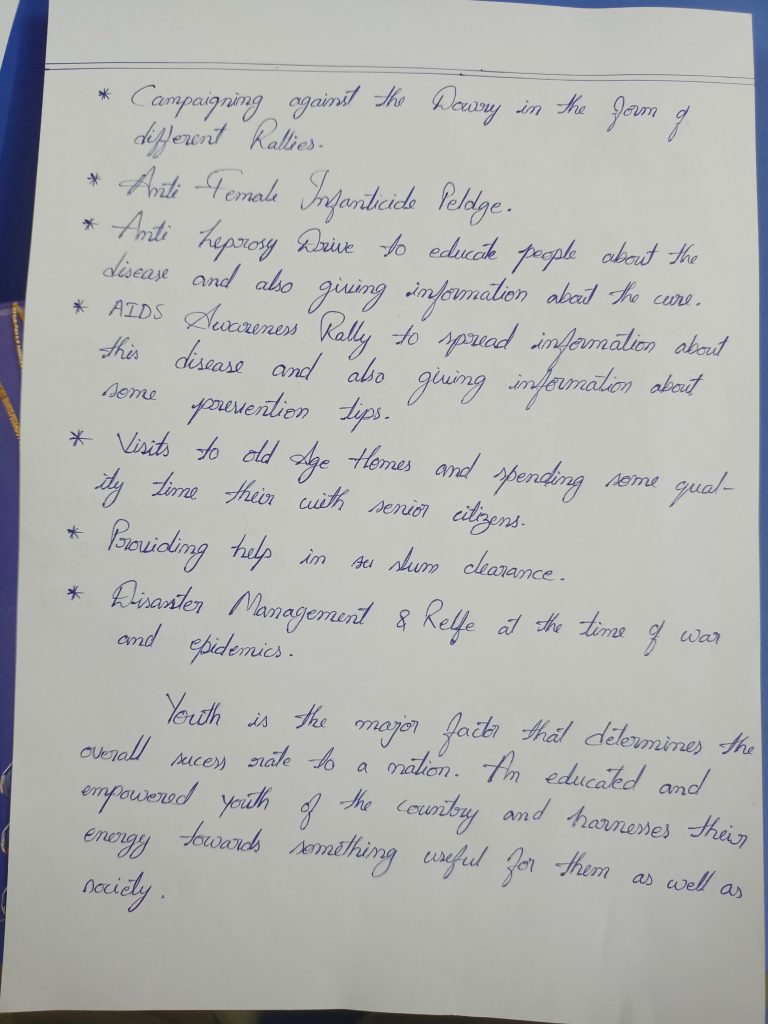 * Campaigning against the Dowry in the form of
different Rallies.
* Anti Female Infanticide Peldge.
* Anti Leprosy Drive to educate people about the
disease and also giving information about the cure.
* AIDS Awareness Rally to spread information about
this disease and also giving information about
some prevention tips.
* Visits to old Age Homes and spending some qual-
ity time their with senior citizens.
* Providing help in su slum clearance.
* Disaster Management & Relfe at the time of war
and epidemics.
Youth is the major factor that determines the
overall sucess rate to a nation. An educated and
empowered youth of the country and harnesses their
energy towards something useful for them as well as
society.